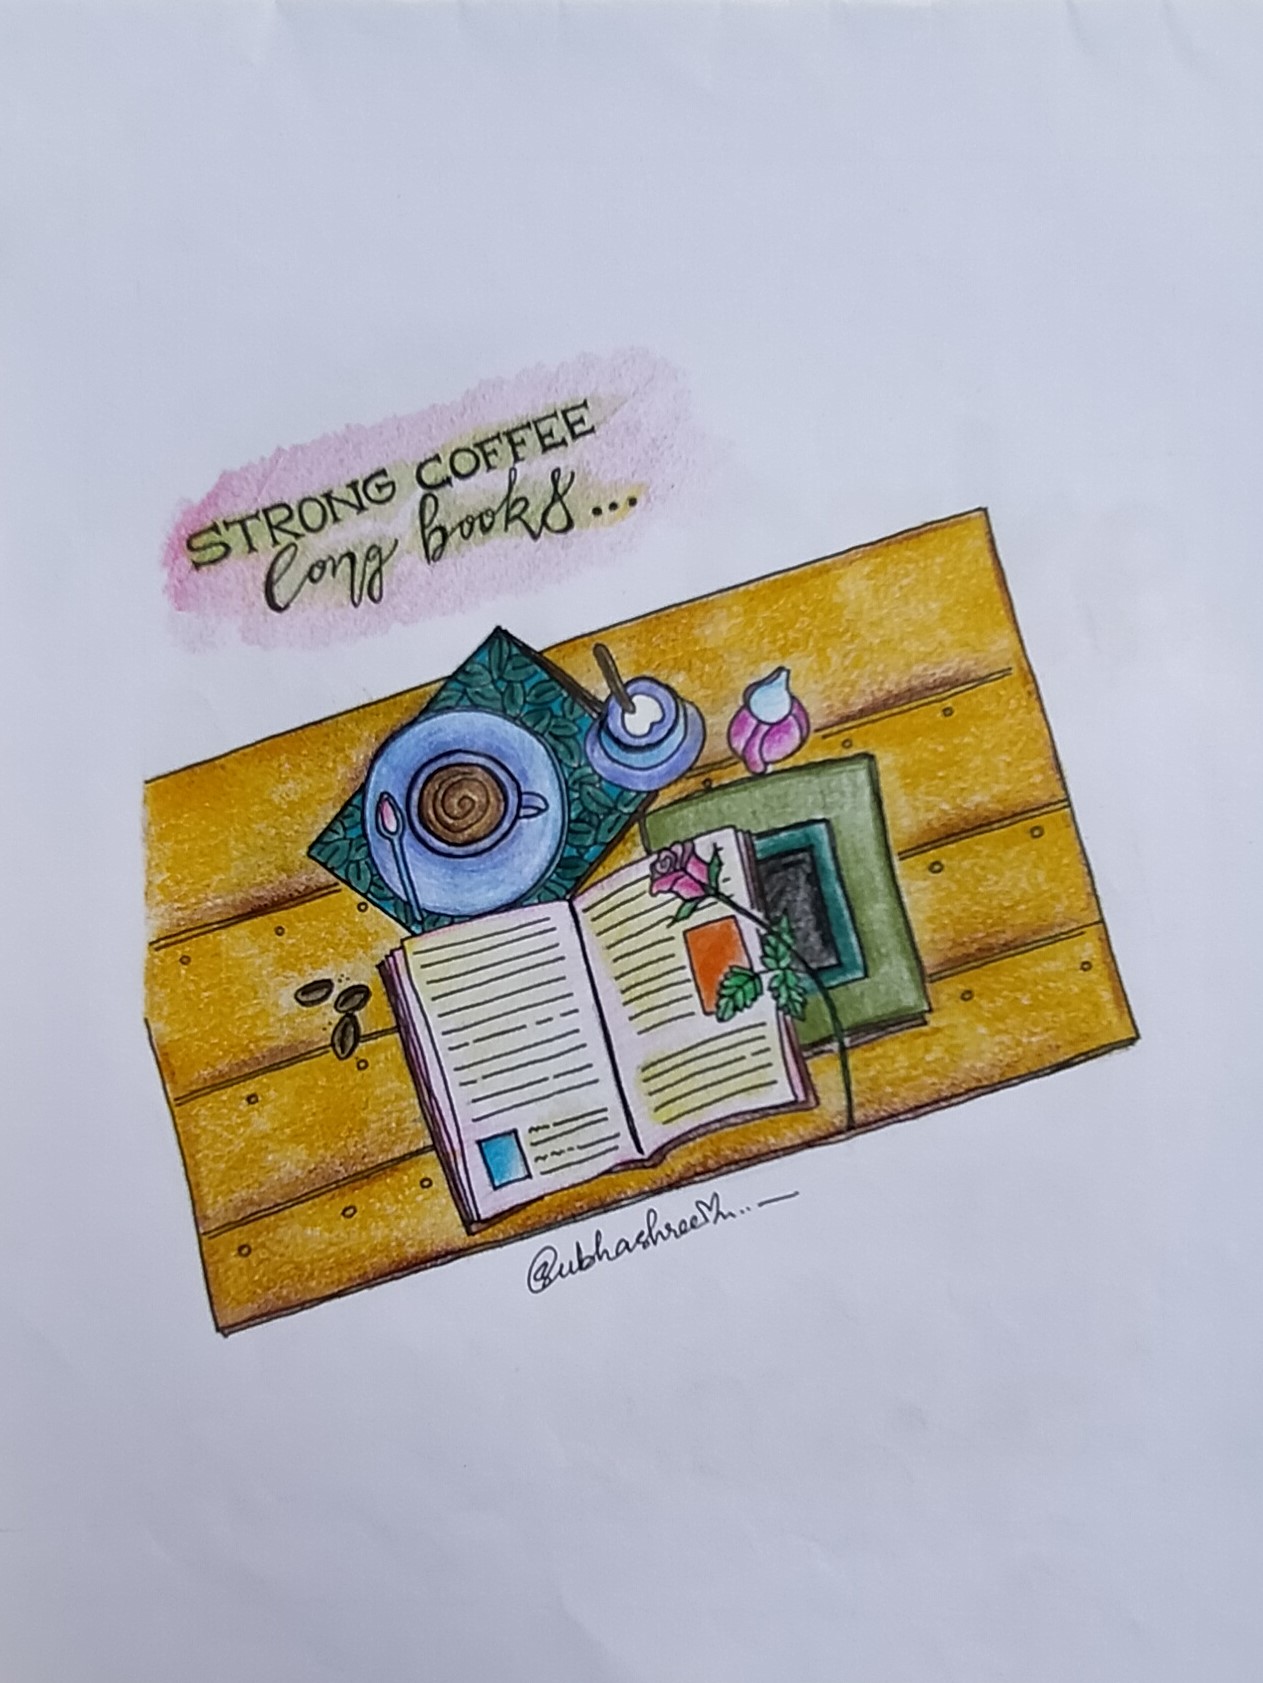 STRONG COFFEE
long books...
@subhashree